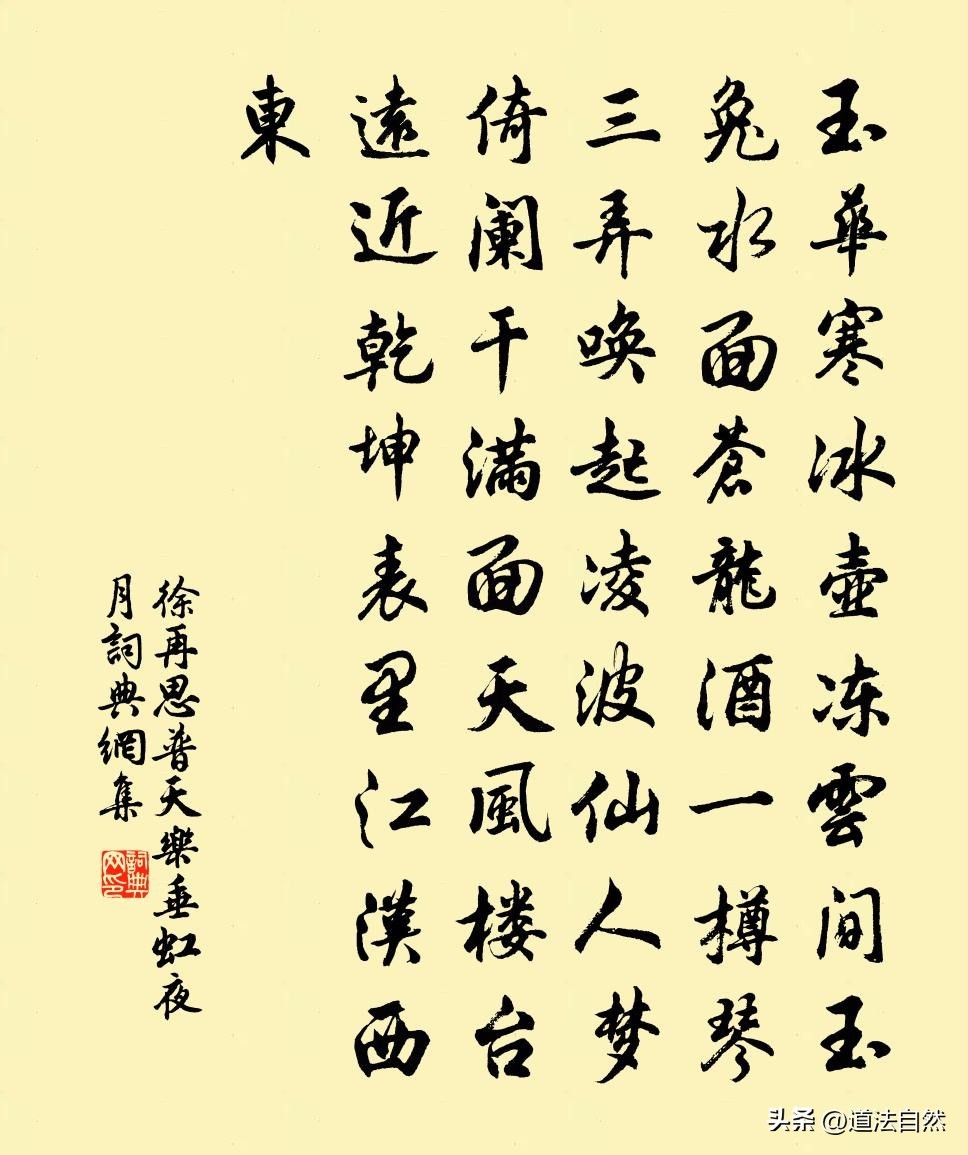 玉華寒冰壺冻雲间玉
兔水面蒼龍酒一樽琴
三弄唤起凌波仙人梦
倚阑干满面天風楼台
遠近乾坤表里江漢西
東
徐再思普天樂垂虹夜
月詞典網集
詞典网印
头条 @道法自然